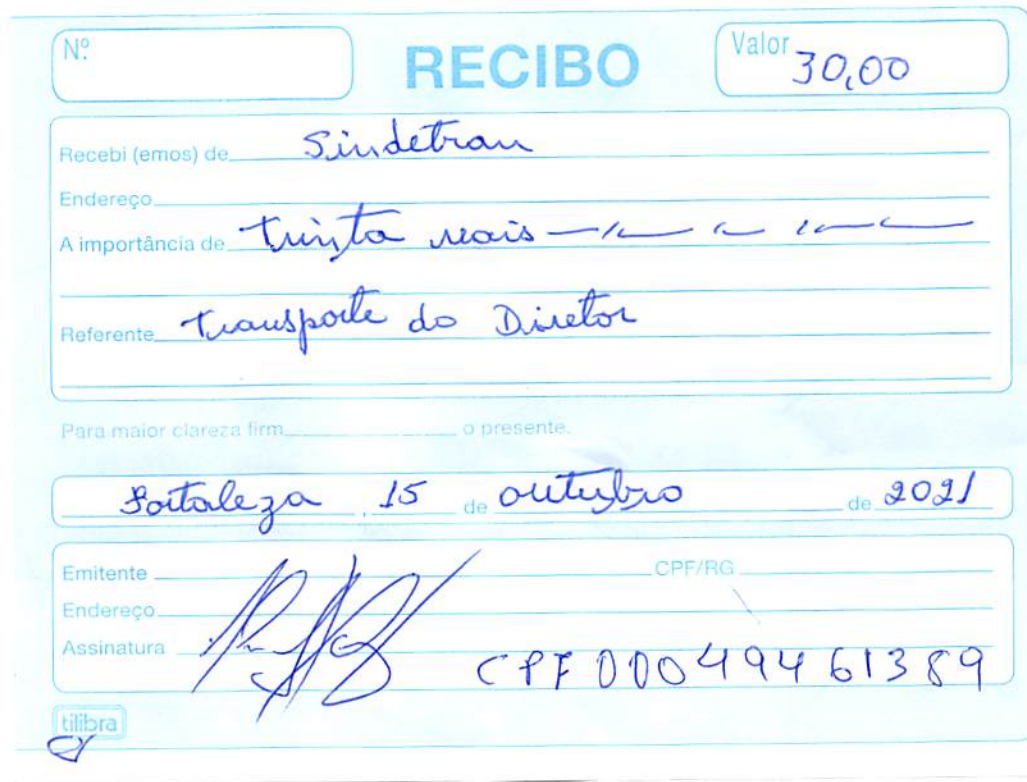 Nº
RECIBO
Valor 30,00
Recebi (emos) de Sindetran
Endereço
A importância de trinta reais
Referente Transporte do Diretor
Para maior clareza firm o presente.
Fortaleza, 15 de outubro de 2021
Emitente CPF/RG
Endereço
Assinatura
CPF 00049461389
tilibra